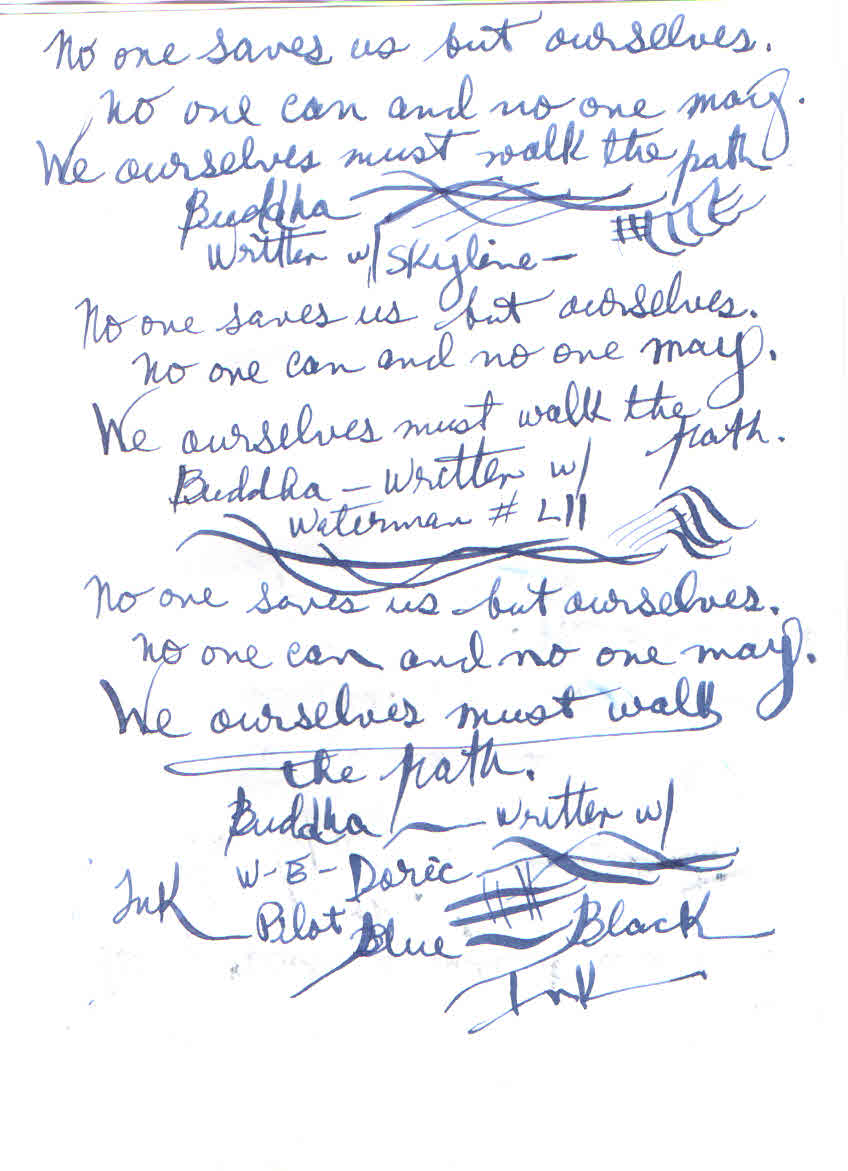 No one saves us but ourselves.
No one can and no one may.
We ourselves must walk the path
Buddha
Written w/ Skyline —
No one saves us but ourselves.
No one can and no one may.
We ourselves must walk the path.
Buddha — Written w/
Waterman # L11
No one saves us but ourselves.
No one can and no one may.
We ourselves must walk
the path.
Buddha — Written w/
W-E- Doric
Ink Pilot Blue Black
Ink